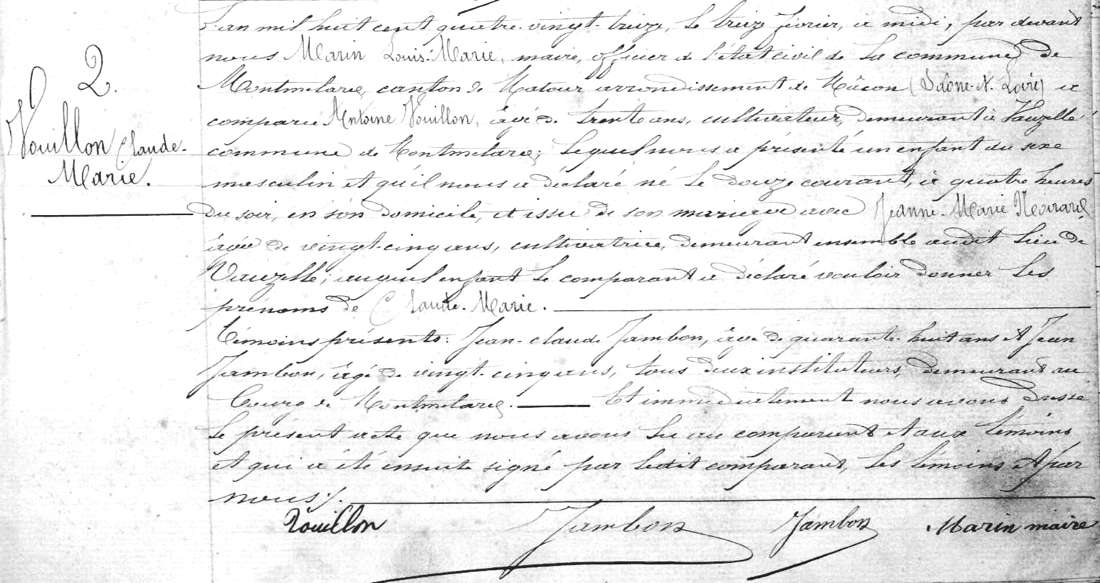 2.
Vouillon Claude-
Marie.
L'an mil huit cent quatre-vingt-treize, le treize février, à midi, par devant
nous Marin Louis-Marie, maire, officier de l'état civil de la commune de
Montmelard, canton de Matour arrondissement de Mâcon (Saône-&-Loire) a
comparu Antoine Vouillon, âgé de trente ans, cultivateur, demeurant à Vauzelle
commune de Montmelard; lequel nous a présenté un enfant du sexe
masculin et qu'il nous a déclaré né le douze courant, à quatre heures
du soir, en son domicile, et issu de son mariage avec Jeanne-Marie
âgée de vingt-cinq ans, cultivatrice, demeurant ensemble au dit lieu de
Vauzelle; auquel enfant le comparant a déclaré vouloir donner les
prénoms de Claude-Marie.
Témoins présents: Jean-Claude Jambon, âgé de quarante-huit ans et Jean
Jambon, âgé de vingt-cinq ans, tous deux instituteurs, demeurant au
bourg de Montmelard. Et immédiatement nous avons dressé
le présent acte que nous avons lu au comparant et aux témoins
et qui a été ensuite signé par le dit comparant, les témoins et par
nous./.
Vouillon Jambon Jambon Marin maire